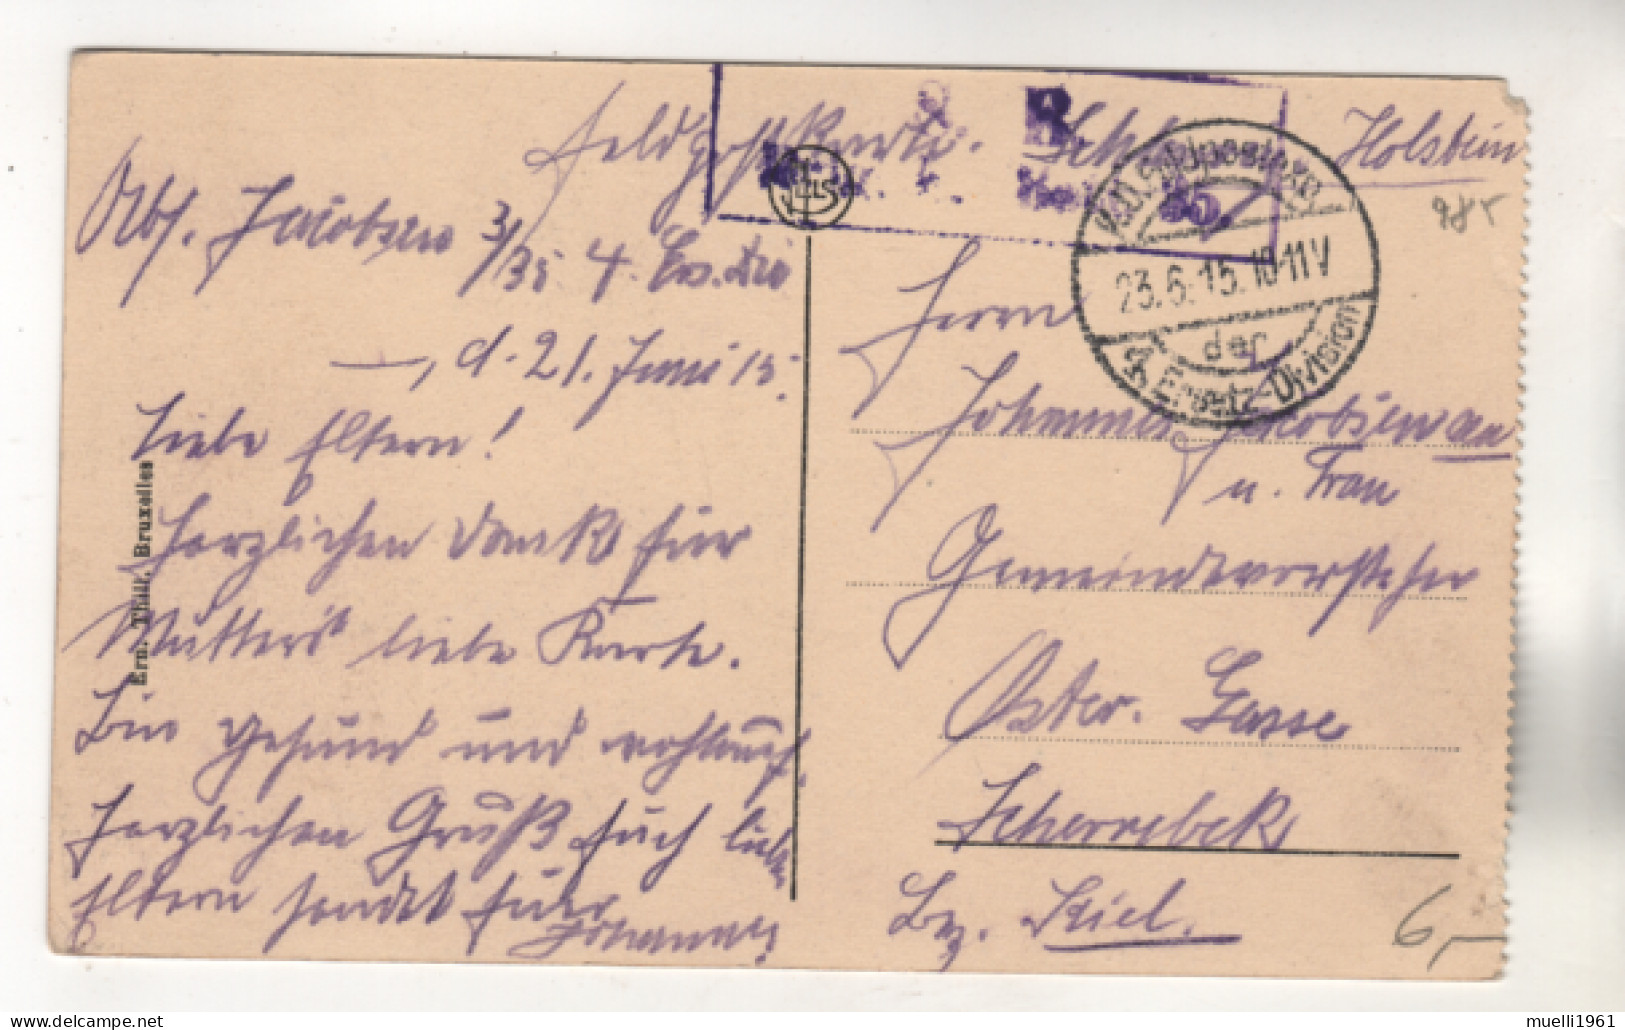 Feldpostkarte. Holstein
985
Abs. Jacobsen 3/35 4. Ers. Div
K.D. Feldpostexp.
23.6.15. 10-11V
der
4. Ersatz-Division
–, d. 21. Juni 15.
Liebe Eltern!
Herzlichen Dank für
Mutters liebe Karte.
Bin gesund und wohlauf.
Herzlichen Gruß Euch lieben
Eltern sendet Euer
Johannes
Ern. Thill, Bruxelles
Herrn
Johannes Jacobsen
u. Frau
Gemeindevorsteher
Oster. Gasse
Scherrebek
Bez. Kiel.
6,–
muelli1961